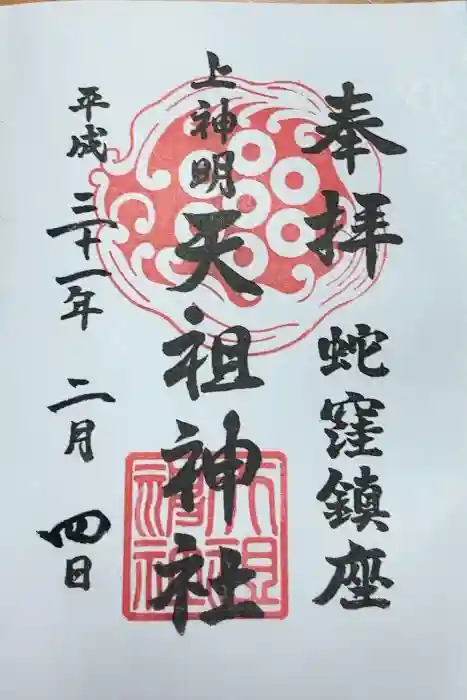 奉拝 蛇窪鎮座
上神明
天祖神社
平成三十一年 二月 四日
天祖神社